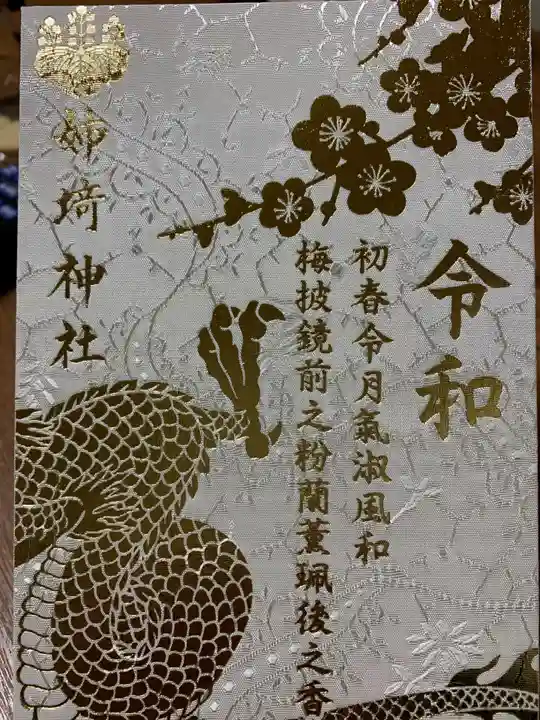 令和
初春令月氣淑風和
梅披鏡前之粉蘭薫珮後之香
姉埼神社